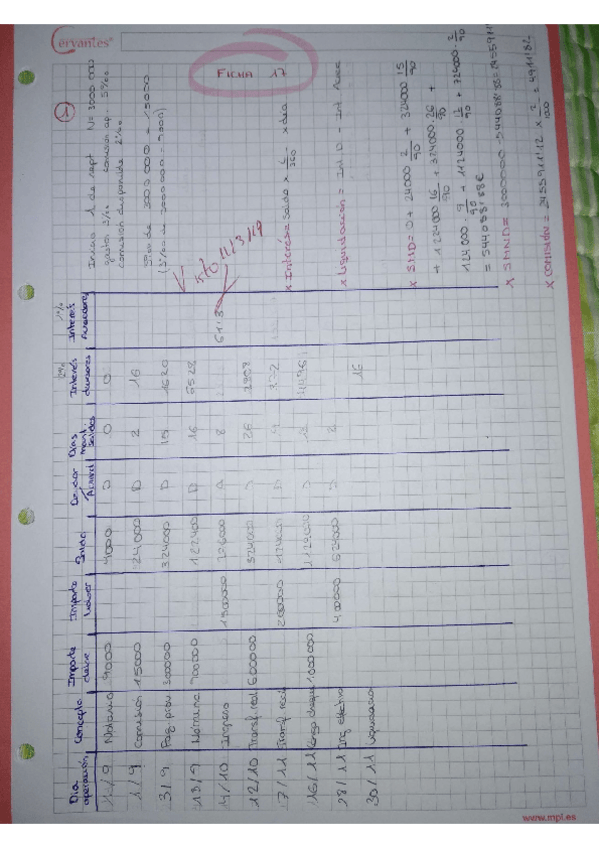 Cervantes
FICHA 17
Inicio 1 de sept N = 3000 000
gastos 3‰ comisión ap. 5‰
comisión disponible 2‰
5‰ de 3000 000 = 15000
(3‰ de 3000000 = 9000)
Día operación Concepto Importe debe Importe haber Saldo Deudor Acreed Días mant. saldos Interés deudores Interés Acreedores
1/9 Notario 9000 9000 D 0 0
1/9 Comisión 15000 24000 D 2 16
3/9 Pag. prov 300000 324000 D 15 1620
13/9 Nómina 900000 1224000 D 16 6528
4/10 Ingreso 8
12/10 Transf. real 600000 324000 D 26
7/11 Transf. reci 200000 124000 D 9
16/11 Cargo cheque 1000000 1124000 D 12
28/11 Ing. efectivo 400000 724000 D 2
30/11 Liquidación
x Interés = Saldo x i/360 x días
x Liquidación = Int. D - Int. Acree
x SMD = 0 + 24000 2/90 + 324000 15/90
+ 1224000 16/90 + 324000 · 26/90 +
124000 · 9/90 + 1124000 · 12/90 + 724000 · 2/90
= 544088'88€
x SMND = 3000000 - 544088'88 =
x COMISIÓN = 2455911'12 x 2/1000 = 4911'82
www.mpl.es